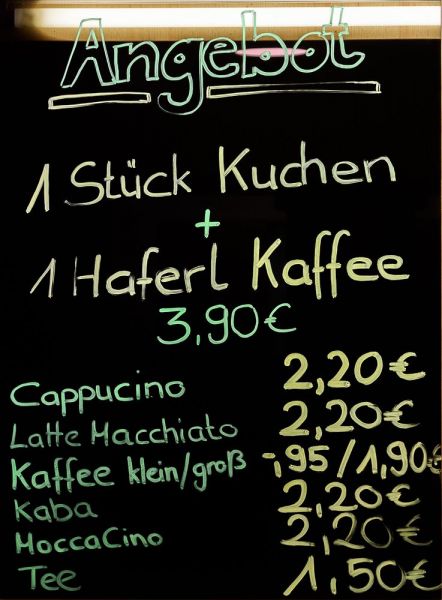 Angebot
1 Stück Kuchen
+
1 Haferl Kaffee
3,90€
Cappucino 2,20€
Latte Macchiato 2,20€
Kaffee klein/groß -,95/1,90€
Kaba 2,20€
MoccaCino 2,20€
Tee 1,50€